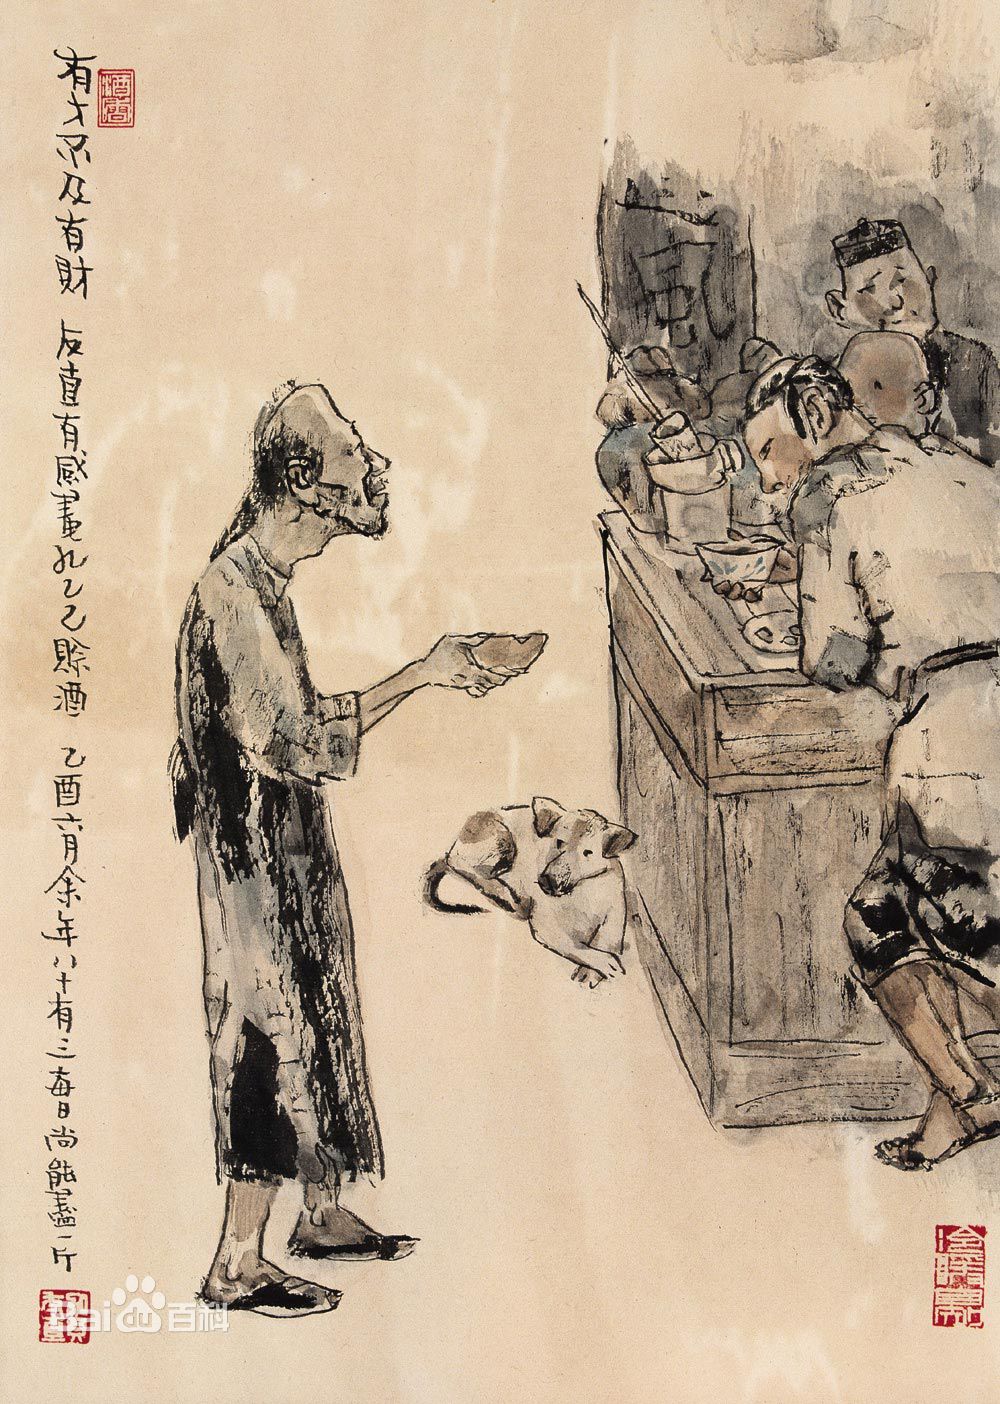 有才不及有財 友直有感畫孔乙己賒酒 乙酉六月余年八十有三每日尚能盡一斤
風
Bai du 百科